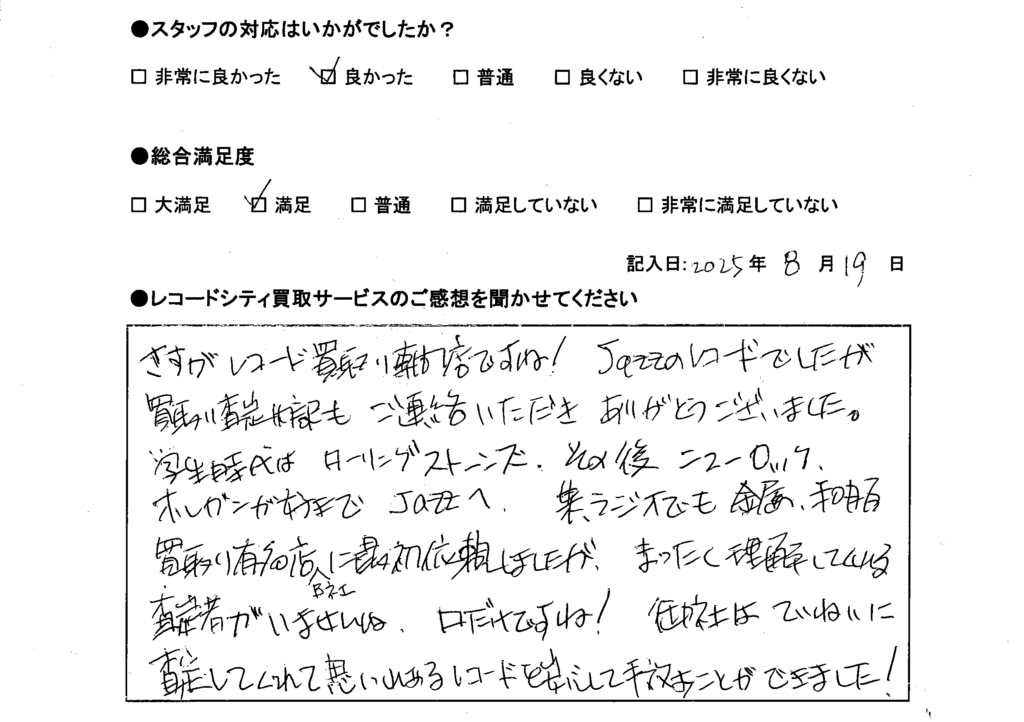 ●スタッフの対応はいかがでしたか？
□ 非常に良かった ☑ 良かった □ 普通 □ 良くない □ 非常に良くない
●総合満足度
□ 大満足 ☑ 満足 □ 普通 □ 満足していない □ 非常に満足していない
記入日:2025年 8 月 19 日
●レコードシティ買取サービスのご感想を聞かせてください
さすがレコード買取り専門店ですね! Jazzのレコードでしたが
買取り査定状況も ご連絡いただき ありがとうございました。
学生時代は ローリングストーンズ、その後 ニューロック、
オルガンが好きで Jazzへ。 ラジオでも 金属、
買取り有名店へに最初依頼しましたが、まったく理解している
B社
査定者がいませんね、口だけですね! 御社は ていねいに
査定してくれて思い出あるレコードを安心して手放すことができました!